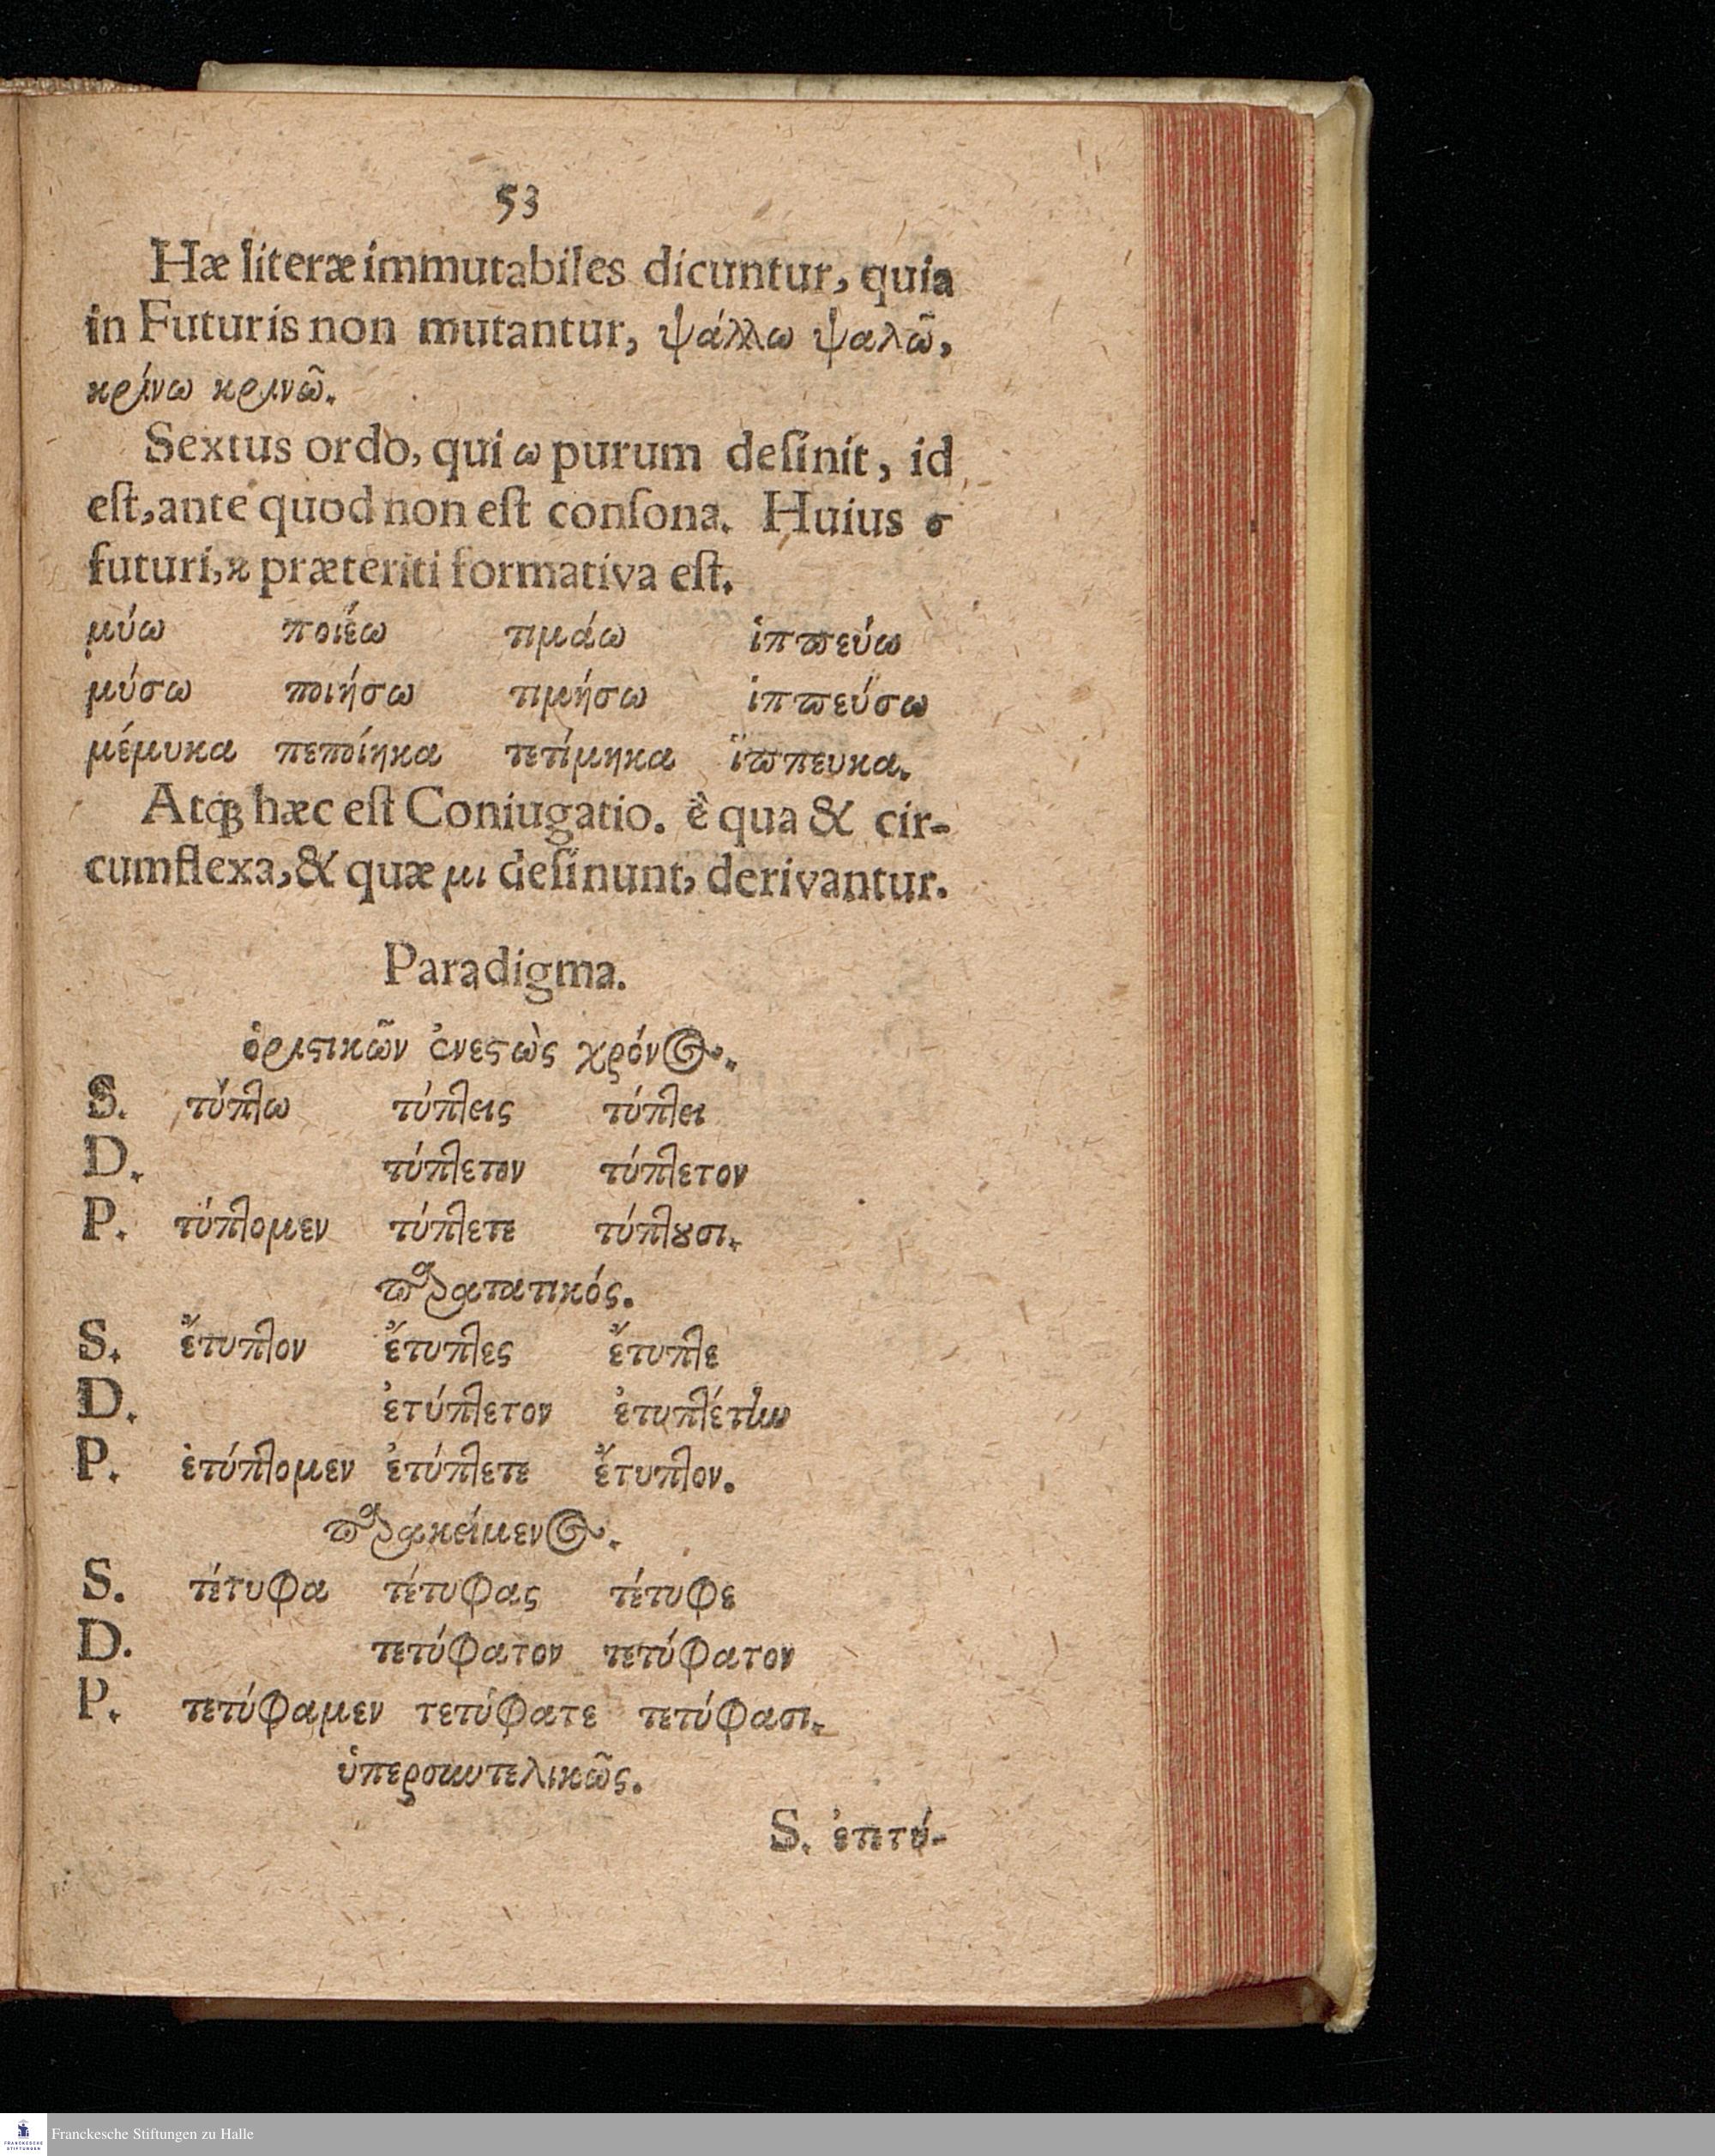 53
Hæ literæ immutabiles dicuntur, quia
in Futuris non mutantur, ψάλλω ψαλῶ,
κρίνω κρινῶ.
Sextus ordo, qui ω purum deſinit, id
eſt, ante quod non eſt conſona. Huius σ
futuri, κ præteriti formativa eſt.
μύω ποιέω τιμάω ἱππεύω
μύσω ποιήσω τιμήσω ἱππεύσω
μέμυκα πεποίηκα τετίμηκα ἵππευκα.
Atqꝫ hæc eſt Coniugatio. è qua & cir-
cumflexa, & quæ μι deſinunt, derivantur.
Paradigma.
ὁριϛικῶν ἐνεϛὼς χρόνος.
S. τύπτω τύπτεις τύπτει
D. τύπτετον τύπτετον
P. τύπτομεν τύπτετε τύπτȣσι.
παρατατικός.
S. ἔτυπτον ἔτυπτες ἔτυπτε
D. ἐτύπτετον ἐτυπτέτην
P. ἐτύπτομεν ἐτύπτετε ἔτυπτον.
παρακείμενος.
S. τέτυφα τέτυφας τέτυφε
D. τετύφατον τετύφατον
P. τετύφαμεν τετύφατε τετύφασι.
ὑπερσυντελικῶς.
S. ἐτετύ-
Franckesche Stiftungen zu Halle
FRANCKESCHE
STIFTUNGEN